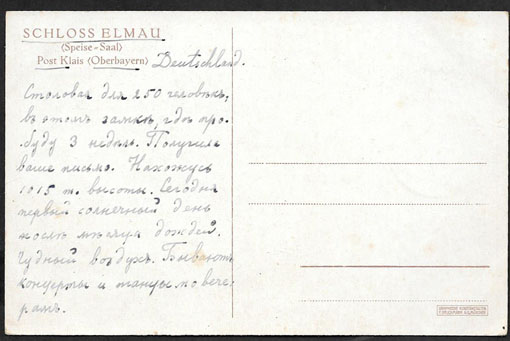 SCHLOSS ELMAU
(Speise-Saal)
Post Klais (Oberbayern) Deutschland.
Столовая для 250 человѣкъ,
въ этомъ замкѣ, гдѣ про-
буду 3 недѣли. Получила
ваше письмо. Нахожусь
1015 m. высоты. Сегодня
первый солнечный день
послѣ мѣсяца дождей.
Чудный воздухъ. Бываютъ
концерты и танцы по вече-
рамъ.